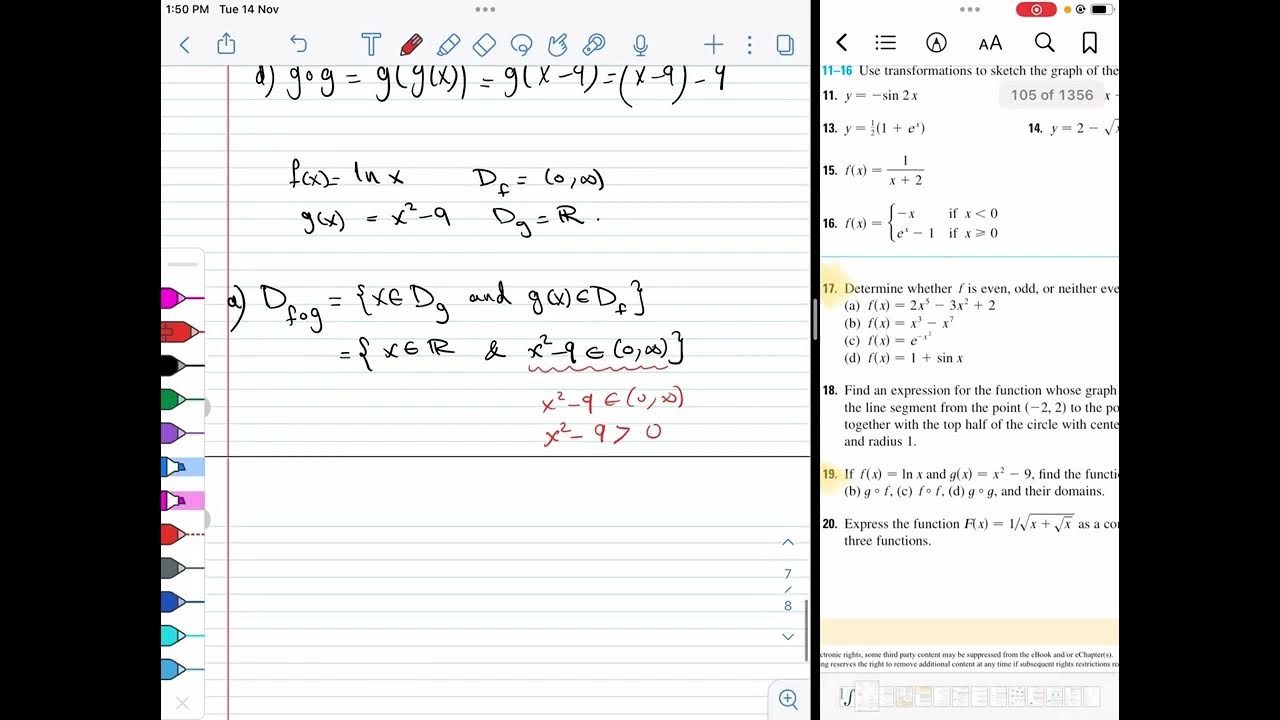 1:50 PM Tue 14 Nov
d) g∘g = g(g(x)) = g(x²-9) = (x²-9)²-9
f(x) = ln x D_f = (0, ∞)
g(x) = x²-9 D_g = ℝ.
a) D_f∘g = {x∈D_g and g(x)∈D_f}
= {x∈ℝ & x²-9∈(0,∞)}
x²-9∈(0,∞)
x²-9 > 0
7
8
T
AA
11–16 Use transformations to sketch the graph of the
11. y = −sin 2x
105 of 1356
13. y = ½(1 + eˣ)
14. y = 2 − √
15. f(x) = 1/(x + 2)
16. f(x) = { −x if x < 0
eˣ − 1 if x ≥ 0
17. Determine whether f is even, odd, or neither eve
(a) f(x) = 2x⁵ − 3x² + 2
(b) f(x) = x³ − x⁷
(c) f(x) = e^(−x²)
(d) f(x) = 1 + sin x
18. Find an expression for the function whose graph
the line segment from the point (−2, 2) to the po
together with the top half of the circle with cente
and radius 1.
19. If f(x) = ln x and g(x) = x² − 9, find the functi
(b) g ∘ f, (c) f ∘ f, (d) g ∘ g, and their domains.
20. Express the function F(x) = 1/√(x + √x) as a co
three functions.
ctronic rights, some third party content may be suppressed from the eBook and/or eChapter(s).
ng reserves the right to remove additional content at any time if subsequent rights restrictions re